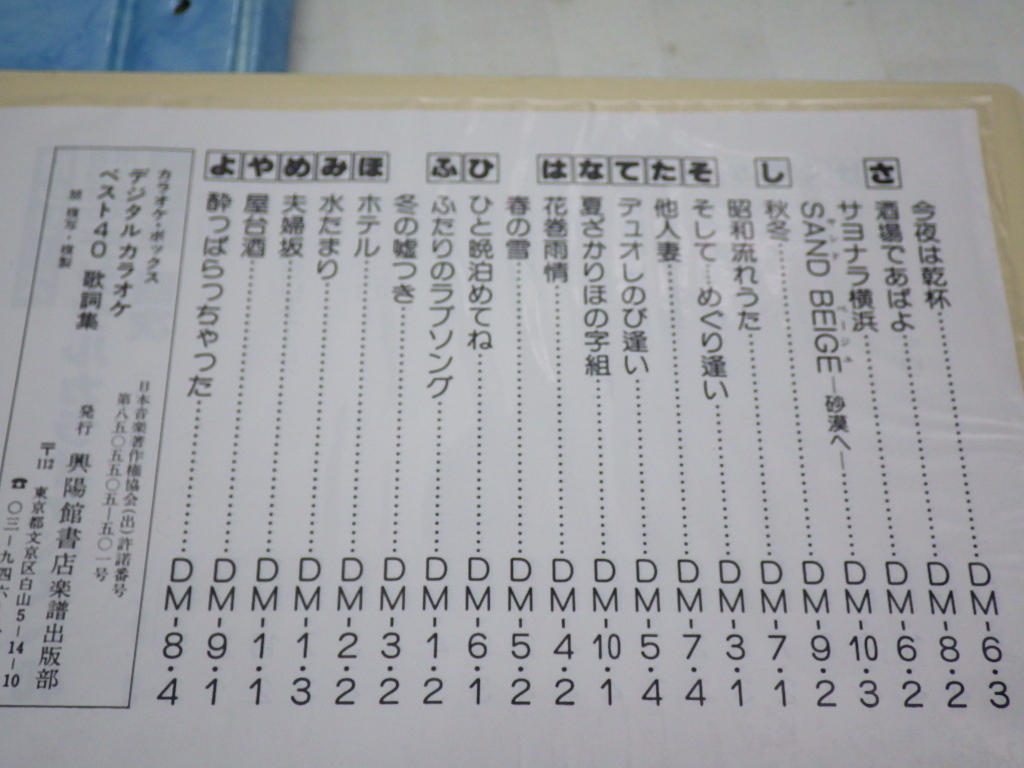 今夜は乾杯……DM-6·3
さ
酒場であばよ……DM-8·2
サヨナラ横浜……DM-6·2
SAND BEIGE—砂漠へ—……DM-10·3
サンド ベージュ
し
秋冬……DM-9·2
昭和流れうた……DM-7·1
そ
そして…めぐり逢い……DM-3·1
た
他人妻……DM-7·4
て
デュオしのび逢い……DM-5·4
な
夏ざかりほの字組……DM-10·1
は
花巻雨情……DM-4·2
春の雪……DM-5·2
ひ
ひと晩泊めてね……DM-6·1
ふ
ふたりのラブソング……DM-1·2
冬の嘘つき……DM-3·2
ほ
ホテル……DM-2·2
み
水たまり……DM-1·3
め
夫婦坂……DM-1·1
や
屋台酒……DM-9·1
よ
酔っぱらっちゃった……DM-8·4
カラオケ・ボックス
デジタルカラオケ
ベスト40 歌詞集
禁 複写・複製
日本音楽著作権協会(出)許諾番号
第八五〇五五〇五-五〇一号
発行 興陽館書店楽譜出版部
〒112 東京都文京区白山5-14-10
☎〇三-九四六